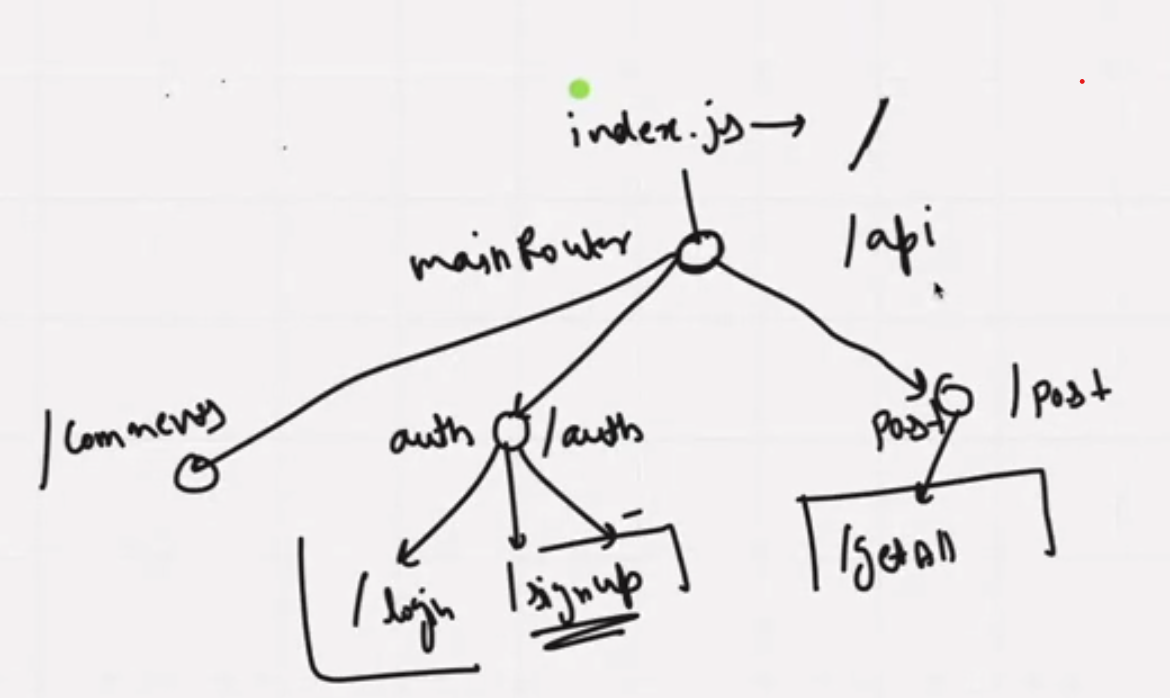 index.js → /
/api
mainRouter
/Comments
auth /auth
post /post
/login
/signup
/getAll